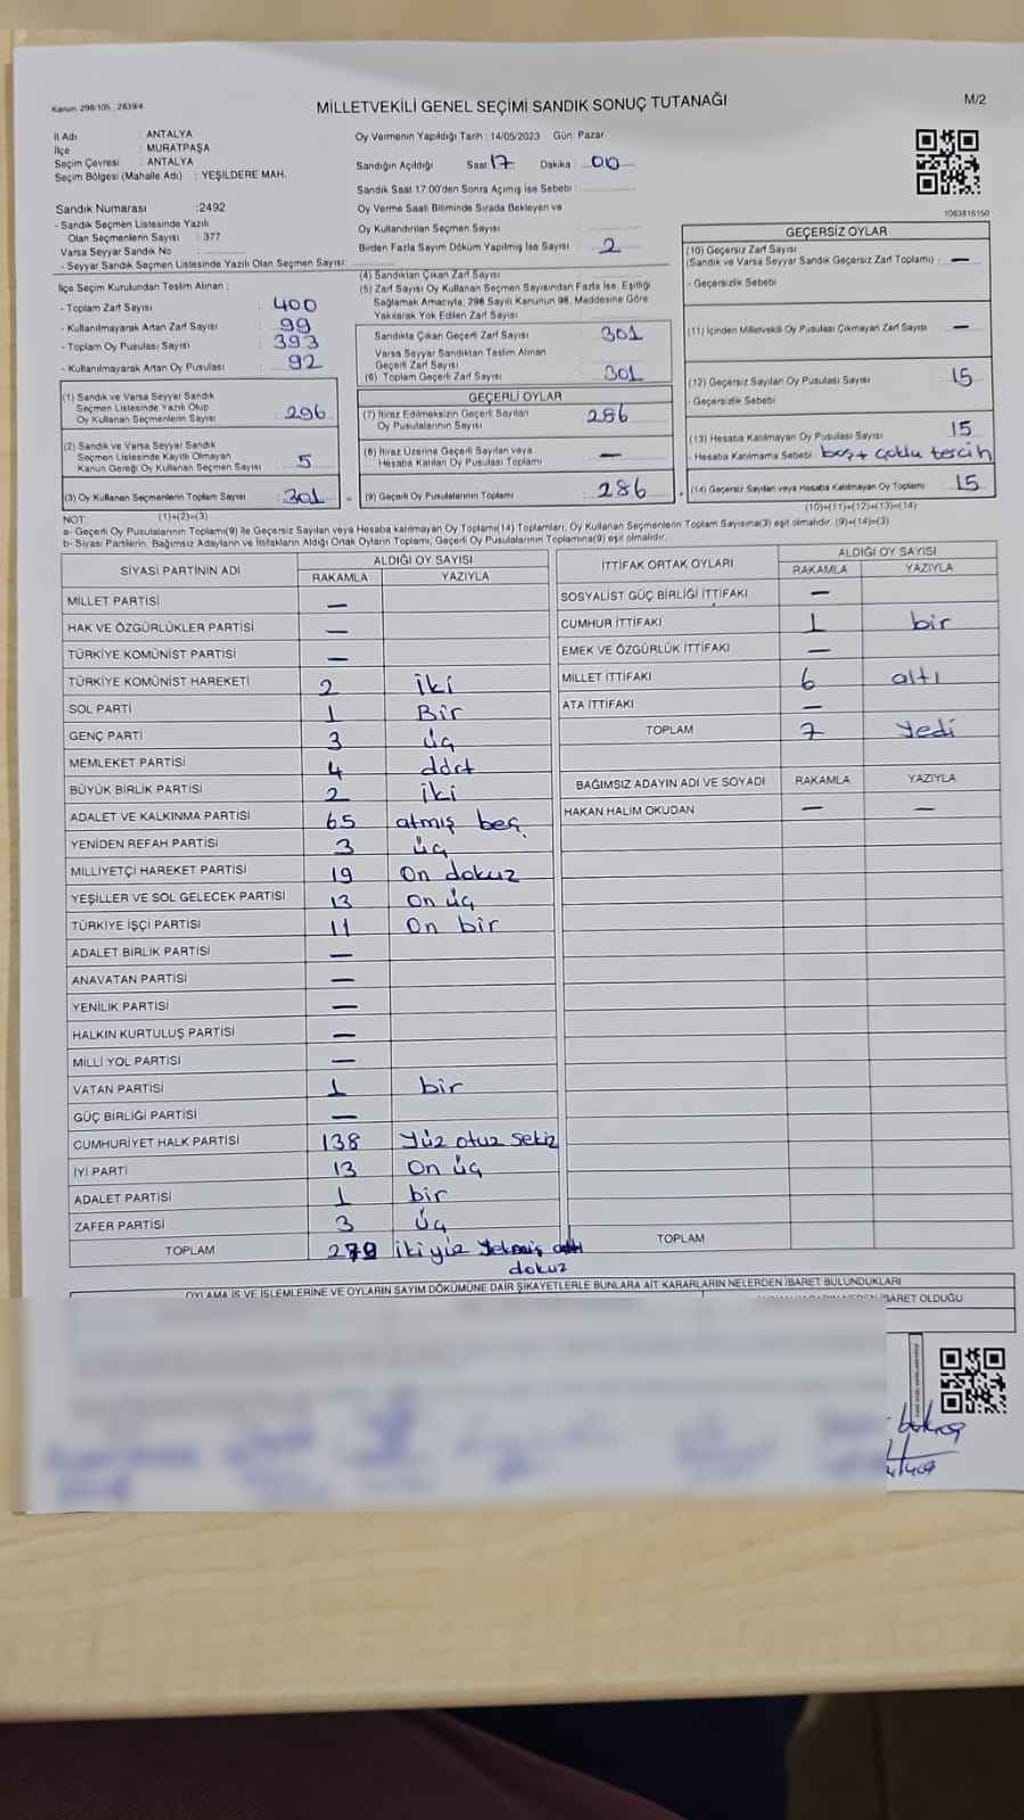 Kanun: 298/105 2839/4
MİLLETVEKİLİ GENEL SEÇİMİ SANDIK SONUÇ TUTANAĞI
M/2
İl Adı : ANTALYA
İlçe : MURATPAŞA
Seçim Çevresi : ANTALYA
Seçim Bölgesi (Mahalle Adı) : YEŞİLDERE MAH.
Sandık Numarası :2492
- Sandık Seçmen Listesinde Yazılı
Olan Seçmenlerin Sayısı : 377
Varsa Seyyar Sandık No
- Seyyar Sandık Seçmen Listesinde Yazılı Olan Seçmen Sayısı:
Oy Vermenin Yapıldığı Tarih : 14/05/2023 Gün: Pazar
Sandığın Açıldığı Saat: 17 Dakika : 00
Sandık Saat 17:00'den Sonra Açımış İse Sebebi :
Oy Verme Saati Bitiminde Sırada Bekleyen ve
Oy Kullandırılan Seçmen Sayısı
Birden Fazla Sayım Döküm Yapılmış İse Sayısı 2
1083816150
İlçe Seçim Kurulundan Teslim Alınan :
- Toplam Zarf Sayısı : 400
- Kullanılmayarak Artan Zarf Sayısı : 99
- Toplam Oy Pusulası Sayısı : 393
- Kullanılmayarak Artan Oy Pusulası : 92
(1) Sandık ve Varsa Seyyar Sandık
Seçmen Listesinde Yazılı Olup
Oy Kullanan Seçmenlerin Sayısı : 296
(2) Sandık ve Varsa Seyyar Sandık
Seçmen Listesinde Kayıtlı Olmayan
Kanun Gereği Oy Kullanan Seçmen Sayısı : 5
(3) Oy Kullanan Seçmenlerin Toplam Sayısı : 301
(1)+(2)=(3)
(4) Sandıktan Çıkan Zarf Sayısı
(5) Zarf Sayısı Oy Kullanan Seçmen Sayısından Fazla İse, Eşitliği
Sağlamak Amacıyla, 298 Sayılı Kanunun 98. Maddesine Göre
Yakılarak Yok Edilen Zarf Sayısı
Sandıkta Çıkan Geçerli Zarf Sayısı 301
Varsa Seyyar Sandıktan Teslim Alınan
Geçerli Zarf Sayısı
(6) Toplam Geçerli Zarf Sayısı 301
GEÇERLİ OYLAR
(7) İtiraz Edilmeksizin Geçerli Sayılan
Oy Pusulalarının Sayısı 286
(8) İtiraz Üzerine Geçerli Sayılan veya
Hesaba Katılan Oy Pusulası Toplamı —
(9) Geçerli Oy Pusulalarının Toplamı : 286
GEÇERSİZ OYLAR
(10) Geçersiz Zarf Sayısı
(Sandık ve Varsa Seyyar Sandık Geçersiz Zarf Toplamı) : —
- Geçersizlik Sebebi
(11) İçinden Milletvekili Oy Pusulası Çıkmayan Zarf Sayısı —
(12) Geçersiz Sayılan Oy Pusulası Sayısı 15
- Geçersizlik Sebebi
(13) Hesaba Katılmayan Oy Pusulası Sayısı 15
- Hesaba Katılmama Sebebi boş + çoklu tercih
(14) Geçersiz Sayılan veya Hesaba Katılmayan Oy Toplamı 15
(10)+(11)+(12)+(13)=(14)
NOT:
a- Geçerli Oy Pusulalarının Toplamı(9) ile Geçersiz Sayılan veya Hesaba katılmayan Oy Toplamı(14) Toplamları, Oy Kullanan Seçmenlerin Toplam Sayısına(3) eşit olmalıdır. (9)+(14)=(3)
b- Siyasi Partilerin, Bağımsız Adayların ve İttifakların Aldığı Ortak Oyların Toplamı, Geçerli Oy Pusulalarının Toplamına(9) eşit olmalıdır.
SİYASİ PARTİNİN ADI ALDIĞI OY SAYISI
RAKAMLA YAZIYLA
MİLLET PARTİSİ —
HAK VE ÖZGÜRLÜKLER PARTİSİ —
TÜRKİYE KOMÜNİST PARTİSİ —
TÜRKİYE KOMÜNİST HAREKETİ 2 iki
SOL PARTİ 1 Bir
GENÇ PARTİ 3 üç
MEMLEKET PARTİSİ 4 dört
BÜYÜK BİRLİK PARTİSİ 2 iki
ADALET VE KALKINMA PARTİSİ 65 atmış beş
YENİDEN REFAH PARTİSİ 3 üç
MİLLİYETÇİ HAREKET PARTİSİ 19 On dokuz
YEŞİLLER VE SOL GELECEK PARTİSİ 13 On üç
TÜRKİYE İŞÇİ PARTİSİ 11 On bir
ADALET BİRLİK PARTİSİ —
ANAVATAN PARTİSİ —
YENİLİK PARTİSİ —
HALKIN KURTULUŞ PARTİSİ —
MİLLİ YOL PARTİSİ —
VATAN PARTİSİ 1 bir
GÜÇ BİRLİĞİ PARTİSİ —
CUMHURİYET HALK PARTİSİ 138 Yüz otuz sekiz
İYİ PARTİ 13 On üç
ADALET PARTİSİ 1 bir
ZAFER PARTİSİ 3 üç
TOPLAM 279 ikiyüz yetmiş
dokuz
İTTİFAK ORTAK OYLARI ALDIĞI OY SAYISI
RAKAMLA YAZIYLA
SOSYALİST GÜÇ BİRLİĞİ İTTİFAKI —
CUMHUR İTTİFAKI 1 bir
EMEK VE ÖZGÜRLÜK İTTİFAKI —
MİLLET İTTİFAKI 6 altı
ATA İTTİFAKI —
TOPLAM 7 Yedi
BAĞIMSIZ ADAYIN ADI VE SOYADI RAKAMLA YAZIYLA
HAKAN HALİM OKUDAN — —
TOPLAM
OYLAMA İŞ VE İŞLEMLERİNE VE OYLARIN SAYIM DÖKÜMÜNE DAİR ŞİKAYETLERLE BUNLARA AİT KARARLARIN NELERDEN İBARET BULUNDUKLARI
İBARET OLDUĞU